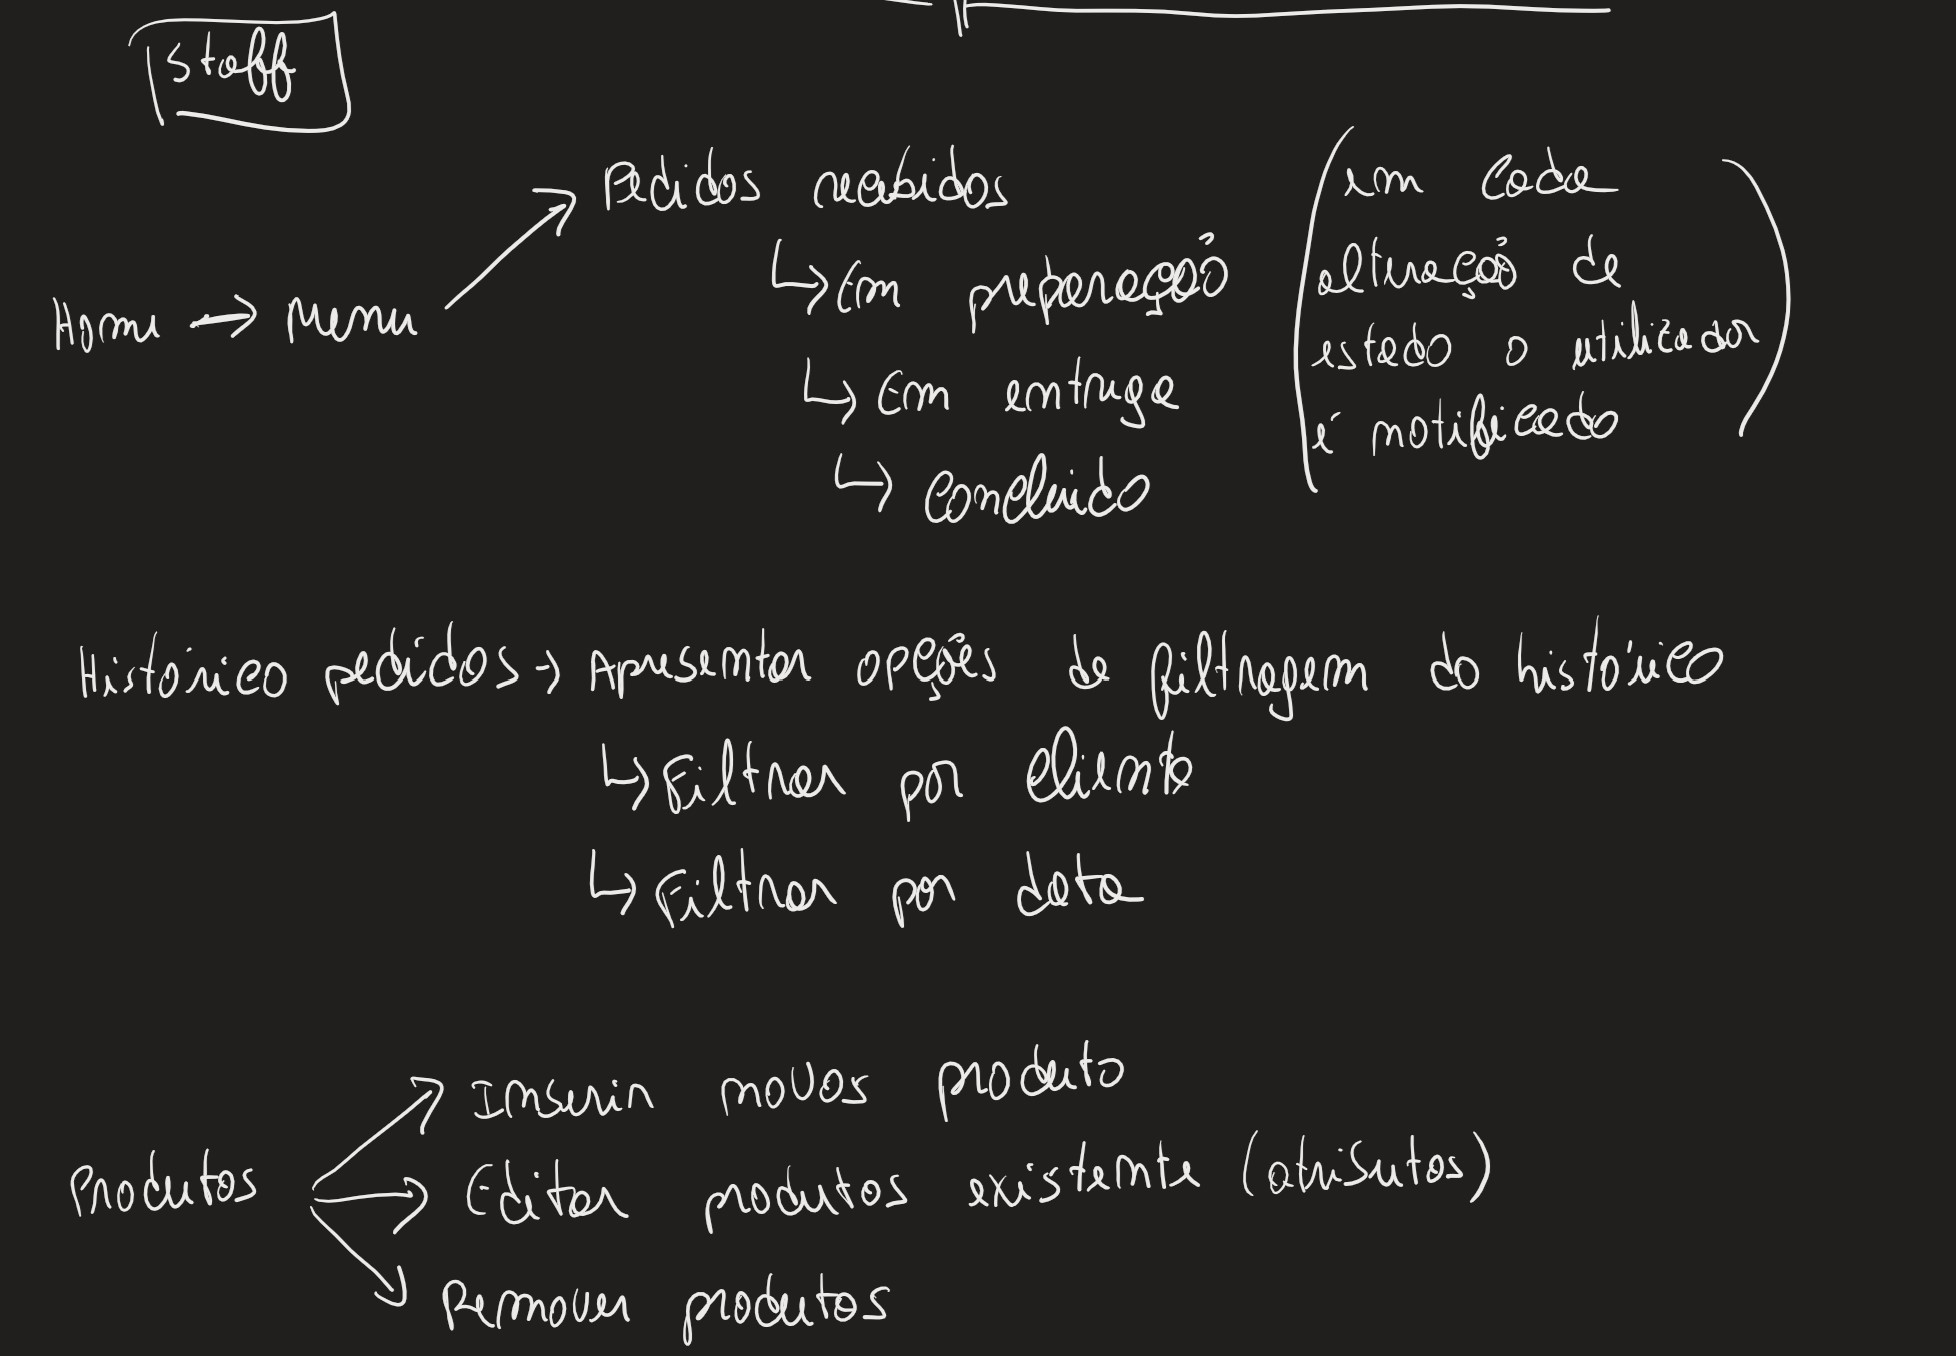 Staff
Pedidos recebidos
Home → Menu
↳ Em preparação
↳ Em entrega
↳ Concluido
(em cada
alteração de
estado o utilizador
é notificado)
Histórico pedidos → Apresentar opções de filtragem do histórico
↳ Filtrar por cliente
↳ Filtrar por data
Inserir novos produto
Produtos
Editar produtos existente (atributos)
Remover produtos